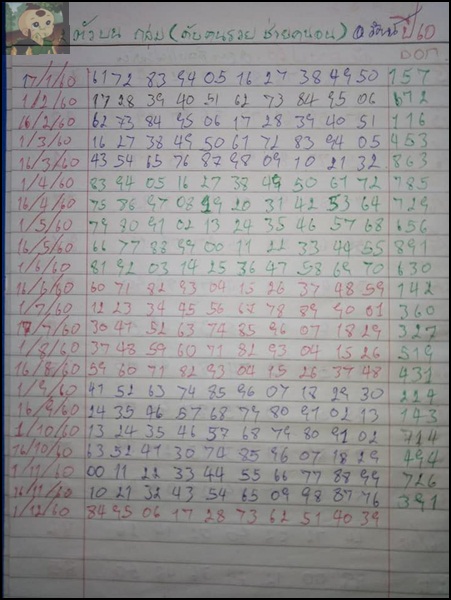 ตัวบน กลุ่ม (คับคนรวย ช่วยคนจน) ปี 60
ออก
17/1/60 61 72 83 94 05 16 27 38 49 50 157
1/2/60 17 28 39 40 51 62 73 84 95 06 612
16/2/60 62 73 84 95 06 17 28 39 40 51 116
1/3/60 16 27 38 49 50 61 72 83 94 05 453
16/3/60 43 54 65 76 87 98 09 10 21 32 863
1/4/60 83 94 05 16 27 38 49 50 61 72 785
16/4/60 75 86 97 08 19 20 31 42 53 64 729
1/5/60 79 80 91 02 13 24 35 46 57 68 656
16/5/60 66 77 88 99 00 11 22 33 44 55 891
1/6/60 81 92 03 14 25 36 47 58 69 70 630
16/6/60 60 71 82 93 04 15 26 37 48 59 142
1/7/60 12 23 34 45 56 67 78 89 90 01 360
17/7/60 30 41 52 63 74 85 96 07 18 29 327
1/8/60 37 48 59 60 71 82 93 04 15 26 519
16/8/60 59 60 71 82 93 04 15 26 37 48 431
1/9/60 41 52 63 74 85 96 07 18 29 30 224
16/9/60 24 35 46 57 68 79 80 91 02 13 143
1/10/60 13 24 35 46 57 68 79 80 91 02 714
16/10/60 63 52 41 30 74 85 96 07 18 29 494
1/11/60 00 11 22 33 44 55 66 77 88 99 726
16/11/60 10 21 32 43 54 65 09 98 87 76 391
1/12/60 84 95 06 17 28 73 62 51 40 39